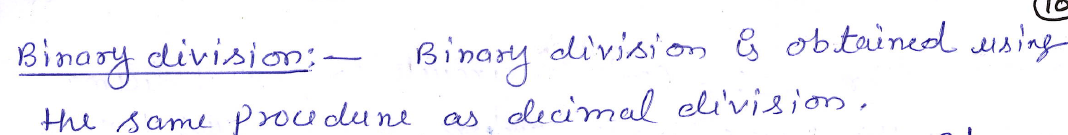 Binary division:- Binary division is obtained using
the same procedure as decimal division.